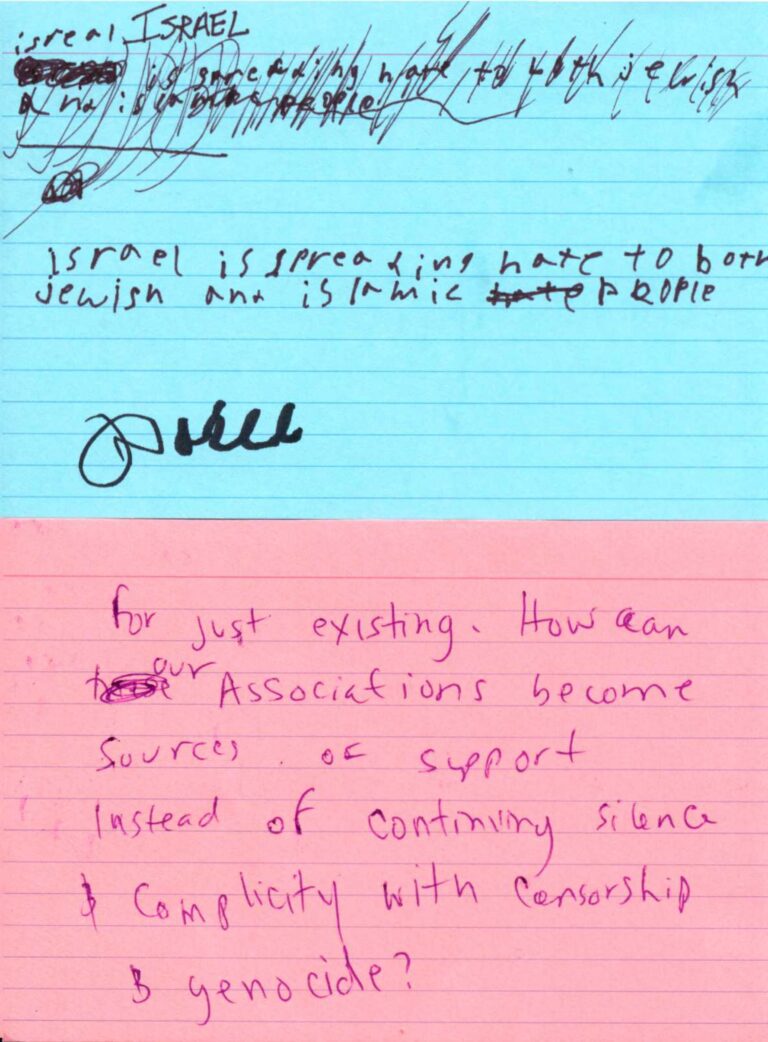 isreal ISRAEL
is spreading hate to both jewish
and islamic people
israel is spreading hate to both
jewish and islamic hate people
for just existing. How can
our
Associations become
Sources of support
Instead of continuing silence
& Complicity with censorship
& genocide?